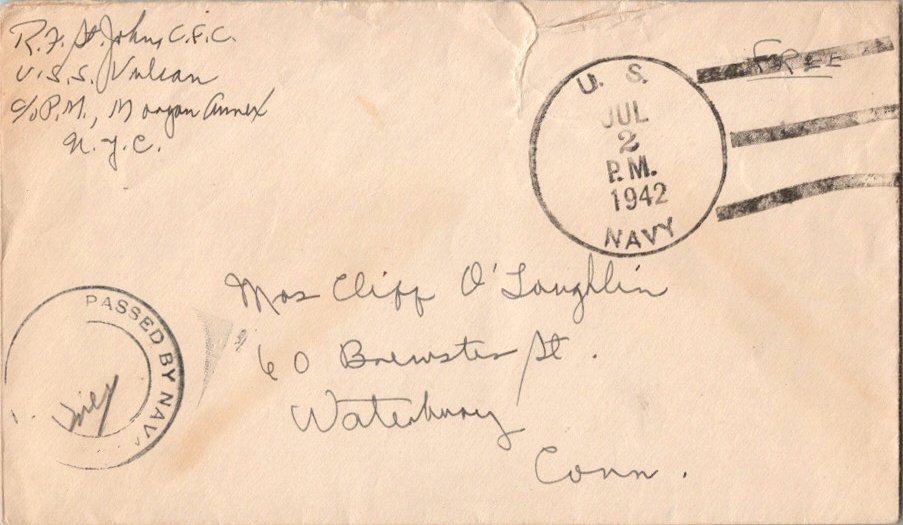 R. F. St. John, C.F.C.
U.S.S. Vulcan
c/o P.M., Morgan Annex
N.Y.C.
FREE
U. S.
JUL
2
P.M.
1942
NAVY
Mrs Cliff O'Loughlin
60 Brewster St.
Waterbury
Conn.
PASSED BY NAV